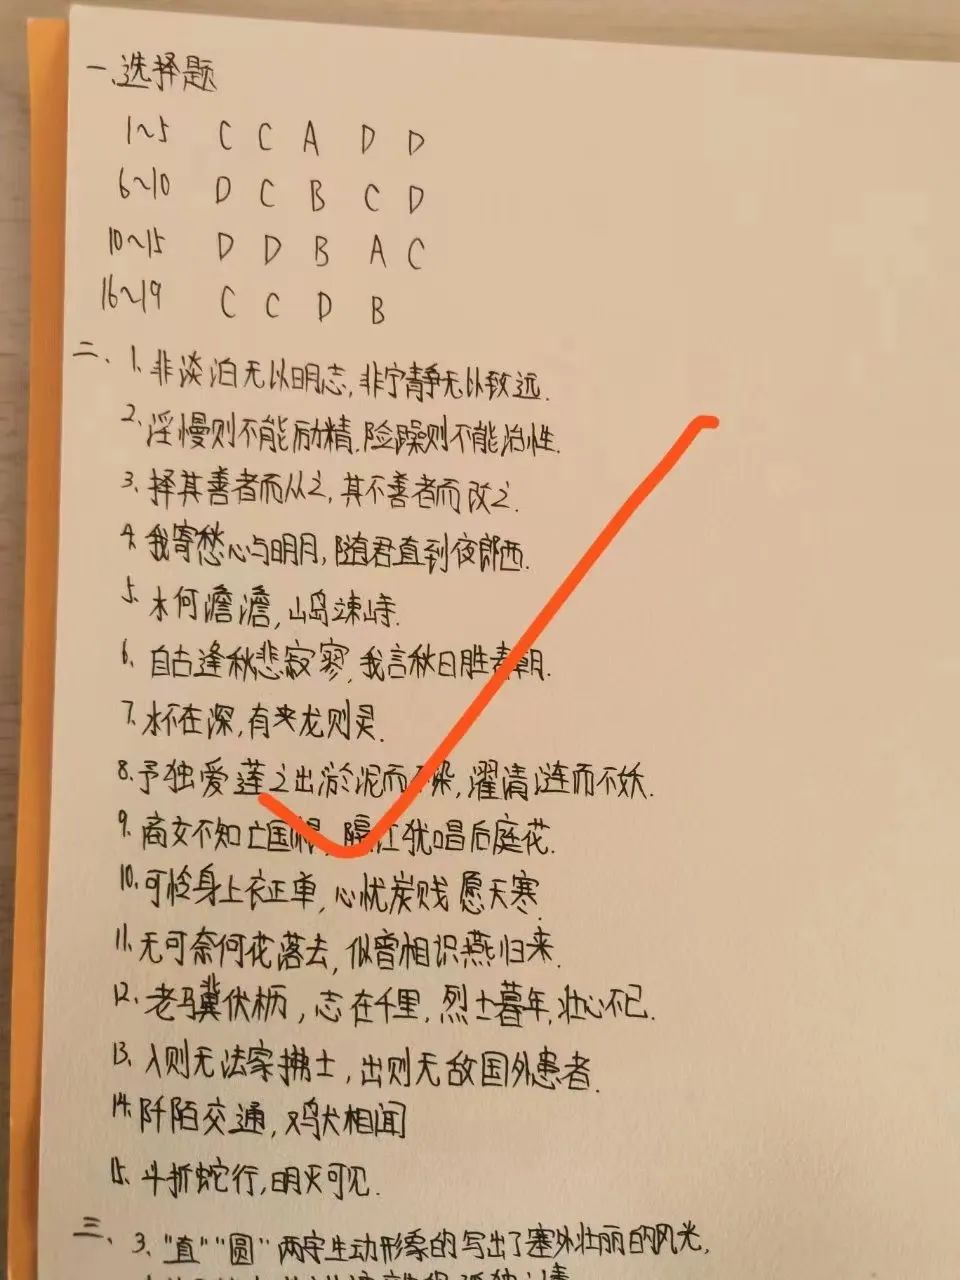 一、选择题
1~5 C C A D D
6~10 D C B C D
10~15 D D B A C
16~19 C C D B
二、1. 非淡泊无以明志,非宁静无以致远.
2. 淫慢则不能励精.险躁则不能治性.
3. 择其善者而从之,其不善者而改之.
4. 我寄愁心与明月,随君直到夜郎西.
5. 水何澹澹,山岛竦峙.
6. 自古逢秋悲寂寥,我言秋日胜春朝.
7. 水不在深,有龙则灵.
8. 予独爱莲之出淤泥而不染,濯清涟而不妖.
9. 商女不知亡国恨,隔江犹唱后庭花.
10. 可怜身上衣正单,心忧炭贱愿天寒.
11. 无可奈何花落去,似曾相识燕归来.
12. 老马伏枥,志在千里.烈士暮年,壮心不已.
13. 入则无法家拂士,出则无敌国外患者.
14. 阡陌交通,鸡犬相闻
15. 斗折蛇行,明灭可见.
三、3. "直""圆"两字生动形象的写出了塞外壮丽的风光,